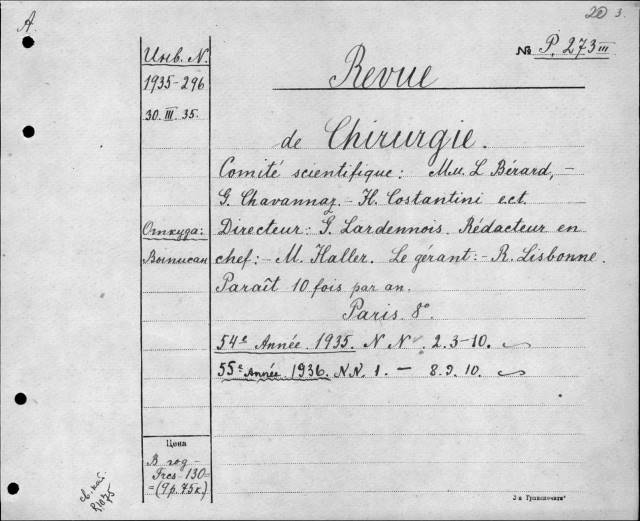 A.
20 3.
Инв. N.
№ P. 273 III
1935-296
Revue
30. III. 35.
de Chirurgie.
Comité scientifique: Mm. L Bérard, –
G. Chavannaz. – H. Costantini ect.
Откуда: Directeur: G. Lardennois. Rédacteur en
Выписан chef: – M. Haller. Le gérant: – R. Lisbonne.
Paraît 10 fois par an.
Paris. 8°
54e Année. 1935. N N. 2. 3-10.
55e Année. 1936. N.N. 1. – 8. 9. 10.
Цена
В год –
Frcs 130 =
= (9р. 75к)
св. кат.
3-я Гранпечать